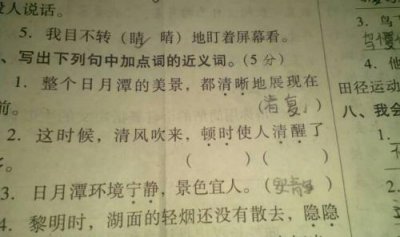 没人说话。
5. 我目不转（睛 晴）地盯着屏幕看。
、写出下列句中加点词的近义词。(5 分)
1. 整个日月潭的美景，都清晰地展现在
前。
2. 这时候，清风吹来，顿时使人清醒了
(　　) (　　)
3. 日月潭环境宁静，景色宜人。(安静)
4. 黎明时，湖面的轻烟还没有散去，隐隐
3. 鸟
4. 他
田径运动
八、我会
1.
2.